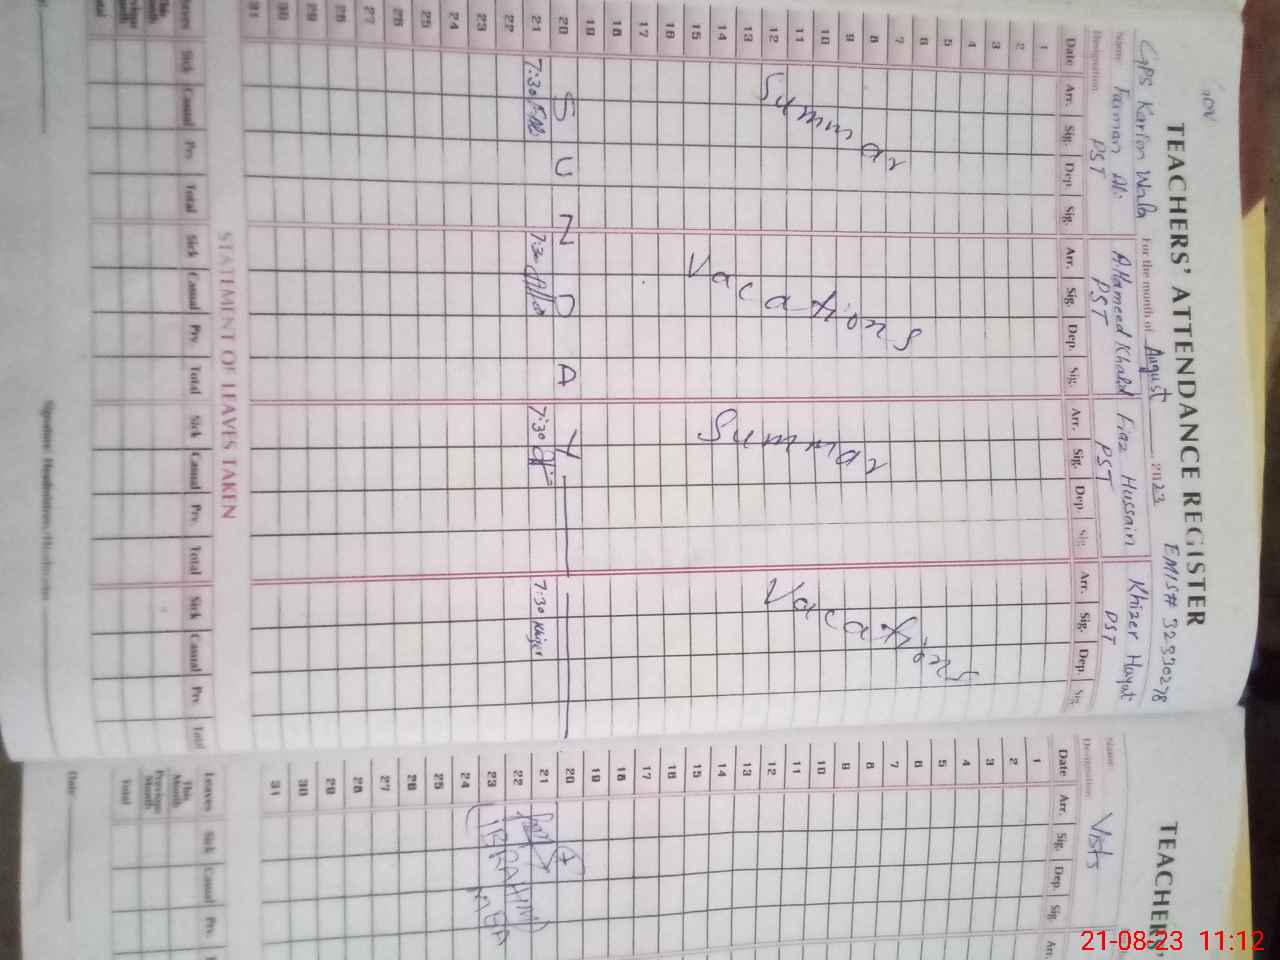 Gov
TEACHERS' ATTENDANCE REGISTER
EMIS# 32330278
GPS Karion Wala For the month of August 2023
Name Farman Ali A.Hameed Khalid Fiaz Hussain Khizer Hayat
Designation PST PST PST PST
Date Arr. Sig. Dep. Sig. Arr. Sig. Dep. Sig. Arr. Sig. Dep. Sig. Arr. Sig. Dep. Sig.
1
2
3
4
5
6
7
8
9
10
11
12
13
14
15
16
17
18
19
20
21
22
23
24
25
26
27
28
29
30
31
Summar Vacations Summar Vacations
SUNDAY
7:30 7:30 7:30 7:30 Khizer
STATEMENT OF LEAVES TAKEN
Leaves Sick Casual Prv. Total Sick Casual Prv. Total Sick Casual Prv. Total Sick Casual Prv. Total
This Month
Previous Month
Total
TEACHERS'
Name
Designation Visits
Date Arr. Sig. Dep. Sig. Arr.
1
2
3
4
5
6
7
8
9
10
11
12
13
14
15
16
17
18
19
20
21
22
23
24
25
26
27
28
29
30
31
(IBRAHIM)
MEA
Leaves Sick Casual Prv.
This Month
Previous Month
Total
Date
21-08-23 11:12